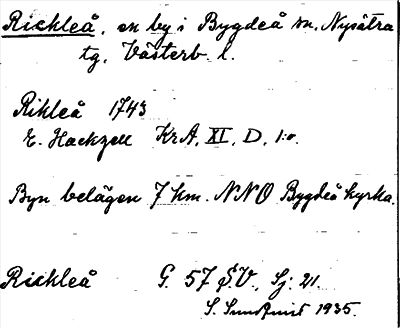 Rickleå, en by i Bygdeå sn. Nysätra
tg. Västerb. l.
Rikleå 1743
E. Hackzell KrA. XI, D, 1:o.
Byn belägen 7 km. NNO Bygdeå kyrka.
Rickleå G. 57 S.V., Sj. 21.
S. Sundquist 1935.